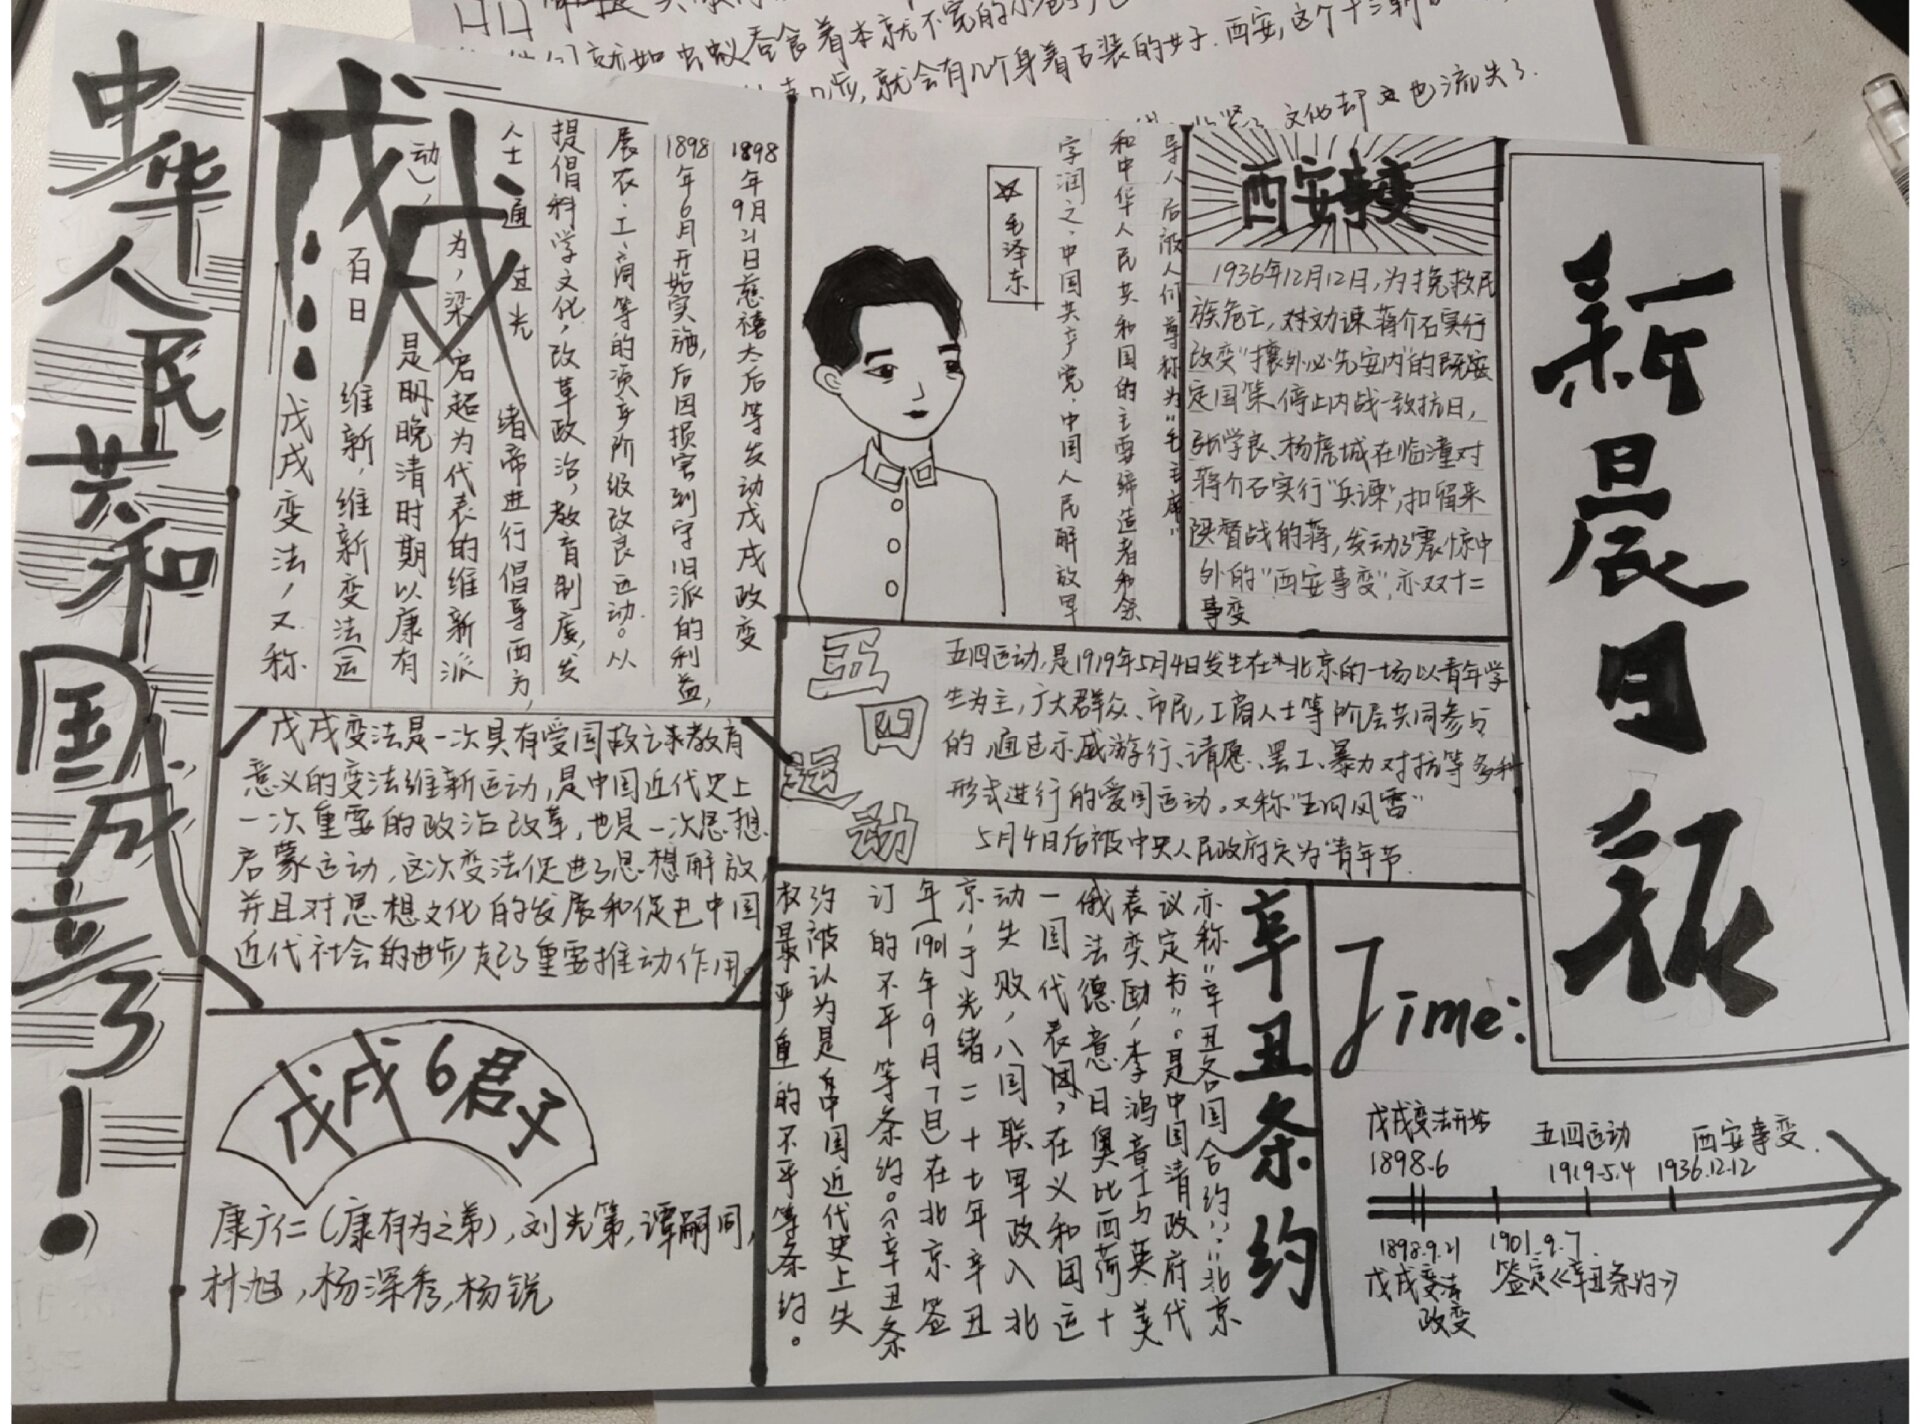 就如虫蚁吞食着本就不宽的小巷
就会有几个身着古装的女子.西安,这个十三朝
文化却也流失了.
中华人民共和国成立了!
戊戌
戊戌变法,又称
百日维新,维新变法(运
动),是明晚清时期以康有
为,梁启超为代表的维新派
人士通过光绪帝进行倡导西方,
提倡科学文化,改革政治,教育制度,发
展农.工.商等的资产阶级改良运动。从
1898年6月开始实施,后因损害到守旧派的利益,
1898年9月21日慈禧太后等发动戊戌政变
戊戌变法是一次具有爱国救亡求教育
意义的变法维新运动,是中国近代史上
一次重要的政治改革,也是一次思想
启蒙运动,这次变法促进了思想解放,
并且对思想文化的发展和促进中国
近代社会的进步起了重要推动作用.
戊戌6君子
康广仁(康有为之弟),刘光第,谭嗣同,
林旭,杨深秀,杨锐
毛泽东
字润之.中国共产党.中国人民解放军
和中华人民共和国的主要缔造者和领
导人.后被人们尊称为"毛主席"
西安事变
1936年12月12日,为挽救民
族危亡,对劝谏蒋介石实行
改变"攘外必先安内"的既安
定国策停止内战一致抗日,
张学良、杨虎城在临潼对
蒋介石实行"兵谏",扣留来
陕督战的蒋,发动了震惊中
外的"西安事变",亦双十二
事变
五四运动
五四运动,是1919年5月4日发生在北京的一场以青年学
生为主,广大群众、市民,工商人士等阶层共同参与
的,通过示威游行、请愿、罢工、暴力对抗等多种
形式进行的爱国运动。又称"五四风雷"
5月4日后被中央人民政府定为"青年节
辛丑条约
亦称"辛丑各国合约","北京
议定书"。是中国清政府代
表奕劻,李鸿章于与英美
俄法德意日奥比西荷十
一国代表国,在义和团运
动失败,八国联军政入北
京,于光绪二十七年辛丑
年(1901年9月7日)在北京签
订的不平等条约。《辛丑条
约被认为是中国近代史上失
权最严重的不平等条约。
新晨日报
Time:
戊戌变法开始
1898.6
五四运动
1919.5.4
西安事变.
1936.12.12
1898.9.21
戊戌变法
政变
1901.9.7.
签定《辛丑条约》